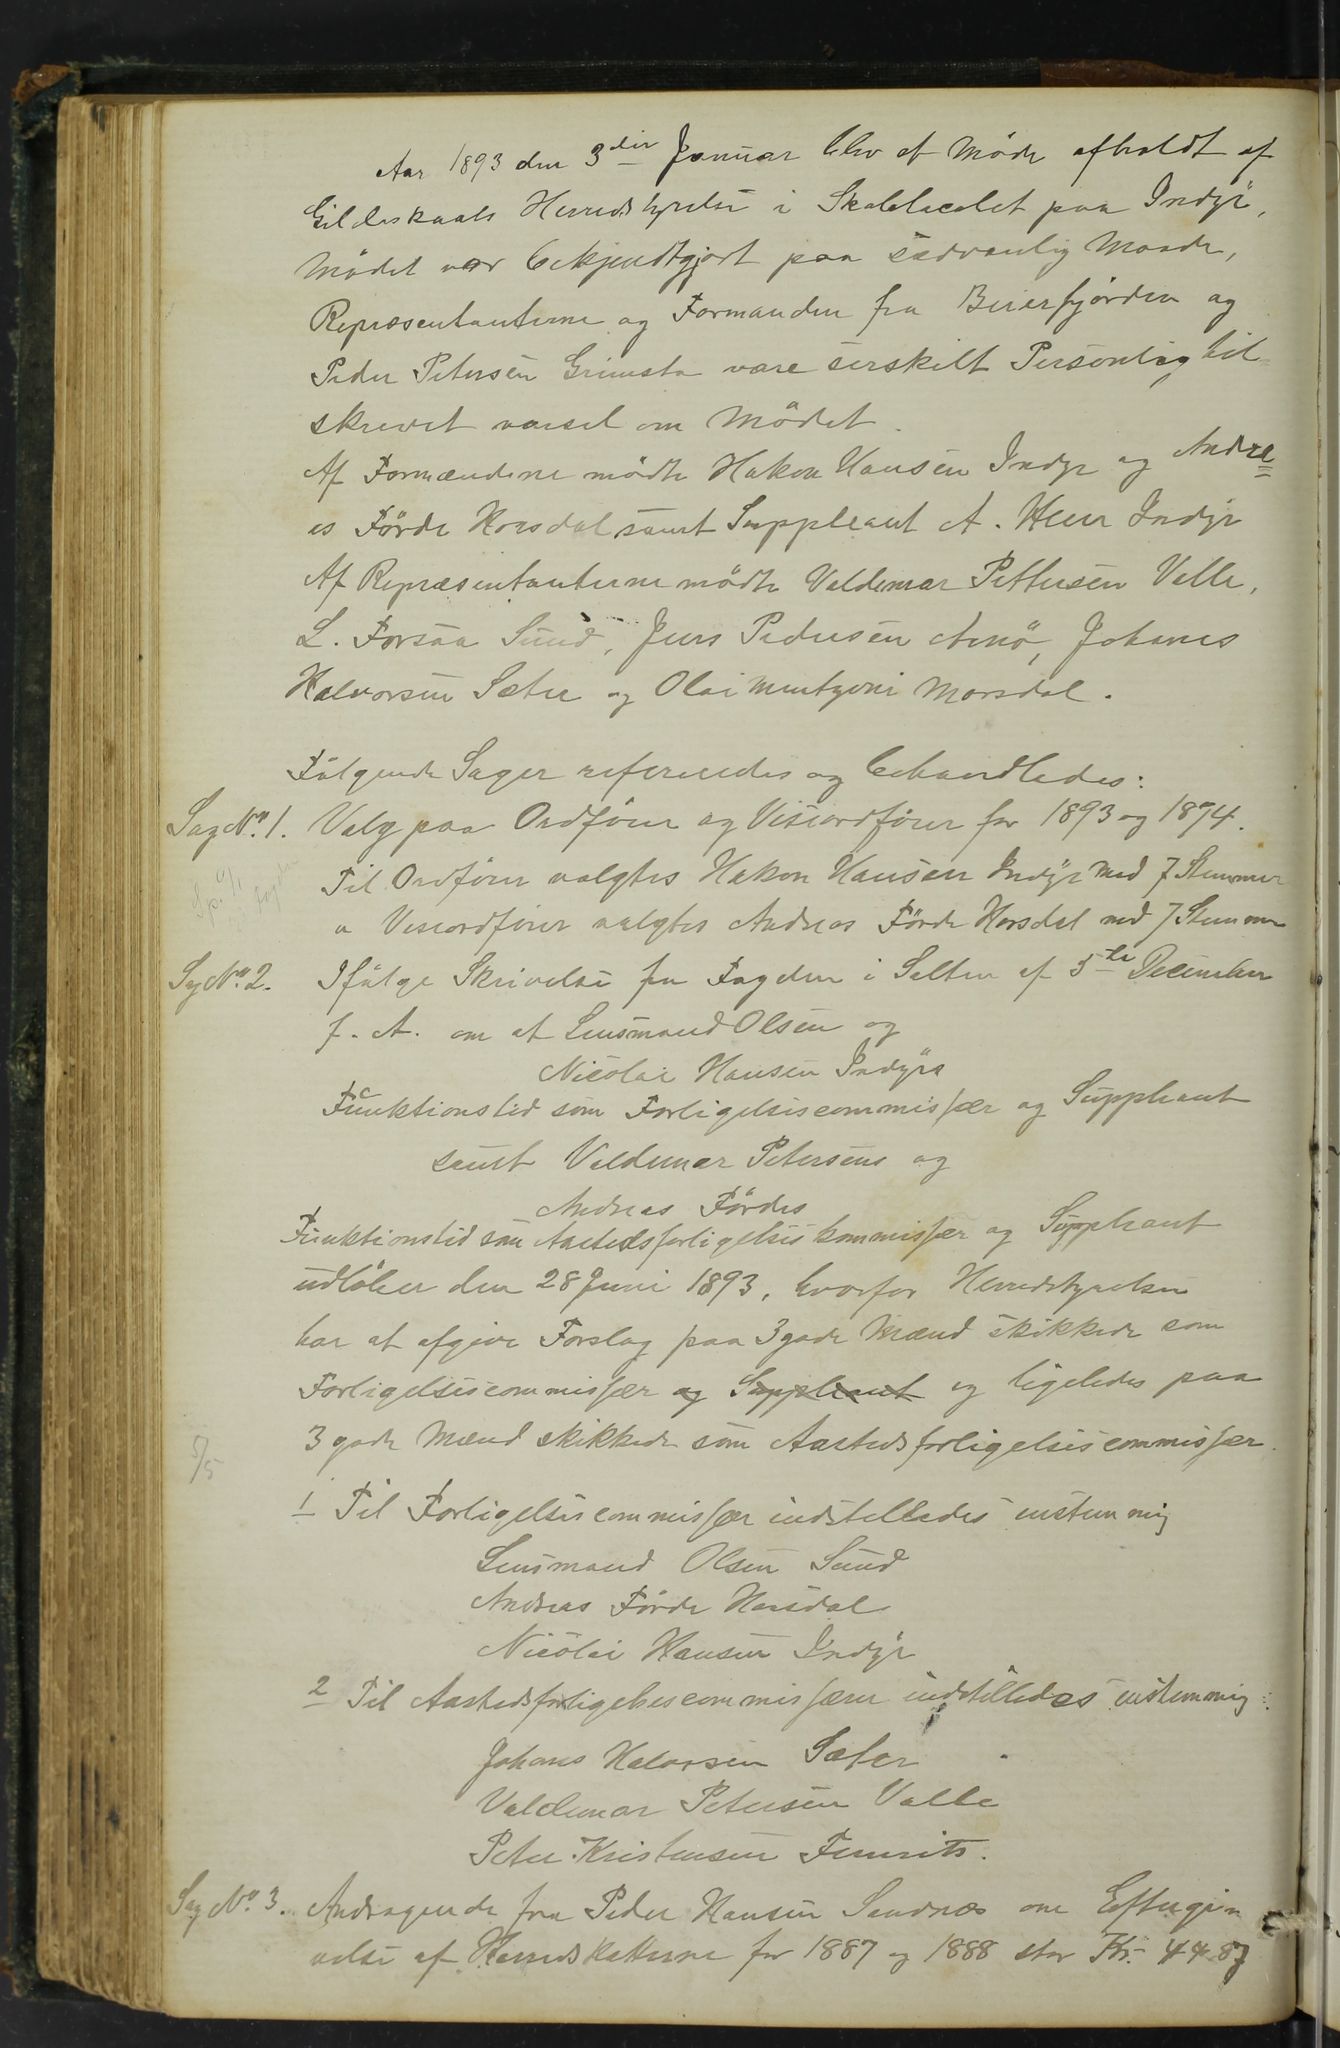 Aar 1893 den 3die Januar blev et Möde afholdt af
Gildeskaals Herredstyrelse i Skolelocalet paa Indyr,
Mödet var bekjendtgjort paa sedvanlig Maade,
Repræsentanterne og Formanden fra Beierfjorden og
Peder Petersen Grimsta vare serskilt Personlig til-
skrevet varsel om Mödet.
Af Formændene mödte Hakon Hansen Indyr og Andre=
es Förde Horsdal samt Suppleant A. Heen Indyr
Af Repræsentanterne mödte Valdemar Pettersen Valle,
L. Forsaa Sund, Jens Pedersen Arnö, Johanes
Halvorsen Sæter og Olai Morsdal.
Fölgende Sager refereredes og behandledes:
Sag No. 1. Valg paa Ordförer og Viseordförer for 1893 og 1894.
Til Ordförer valgtes Hakon Hansen Indyr med 7 Stemmer
" Viseordförer valgtes Andreas Förde Horsdal med 7 Stemmer
Sag No. 2. Ifölge Skrivelse fra Fogden i Salten af 5te December
f. A. om at Lensmand Olsen og
Nicolai Hansen Indyrs
Funktionstid som Forligelsescommissær og Suppleant
samt Valdemar Petersens og
Andreas Fördes
Funktionstid som Aastedsforligelseskommissær og Suppleant
udlöber den 28 Juni 1893, hvorfor Herredstyrelsen
har at afgive Forslag paa 3 gode Mænd skikkede som
Forligelsescommissær og Suppleant og ligeledes paa
3 gode Mænd skikkede som Aastedsforligelsescommissær.
5/5
1 Til Forligelsescommissær indstilledes enstemmig
Lensmand Olsen Sund
Andreas Förde Horsdal
Nicolai Hansen Indyr
2 Til Aastedsforligelsescommissærer indstilledes enstemmig:
Johans Halvorsen Sæter
Valdemar Petersen Valle
Peter Kristensen
Sag No. 3. Andragende fra Peder Hansen Sandnæs om Eftergi=
velse af Herredskatterne for 1887 og 1888 stor Kr. 44.87